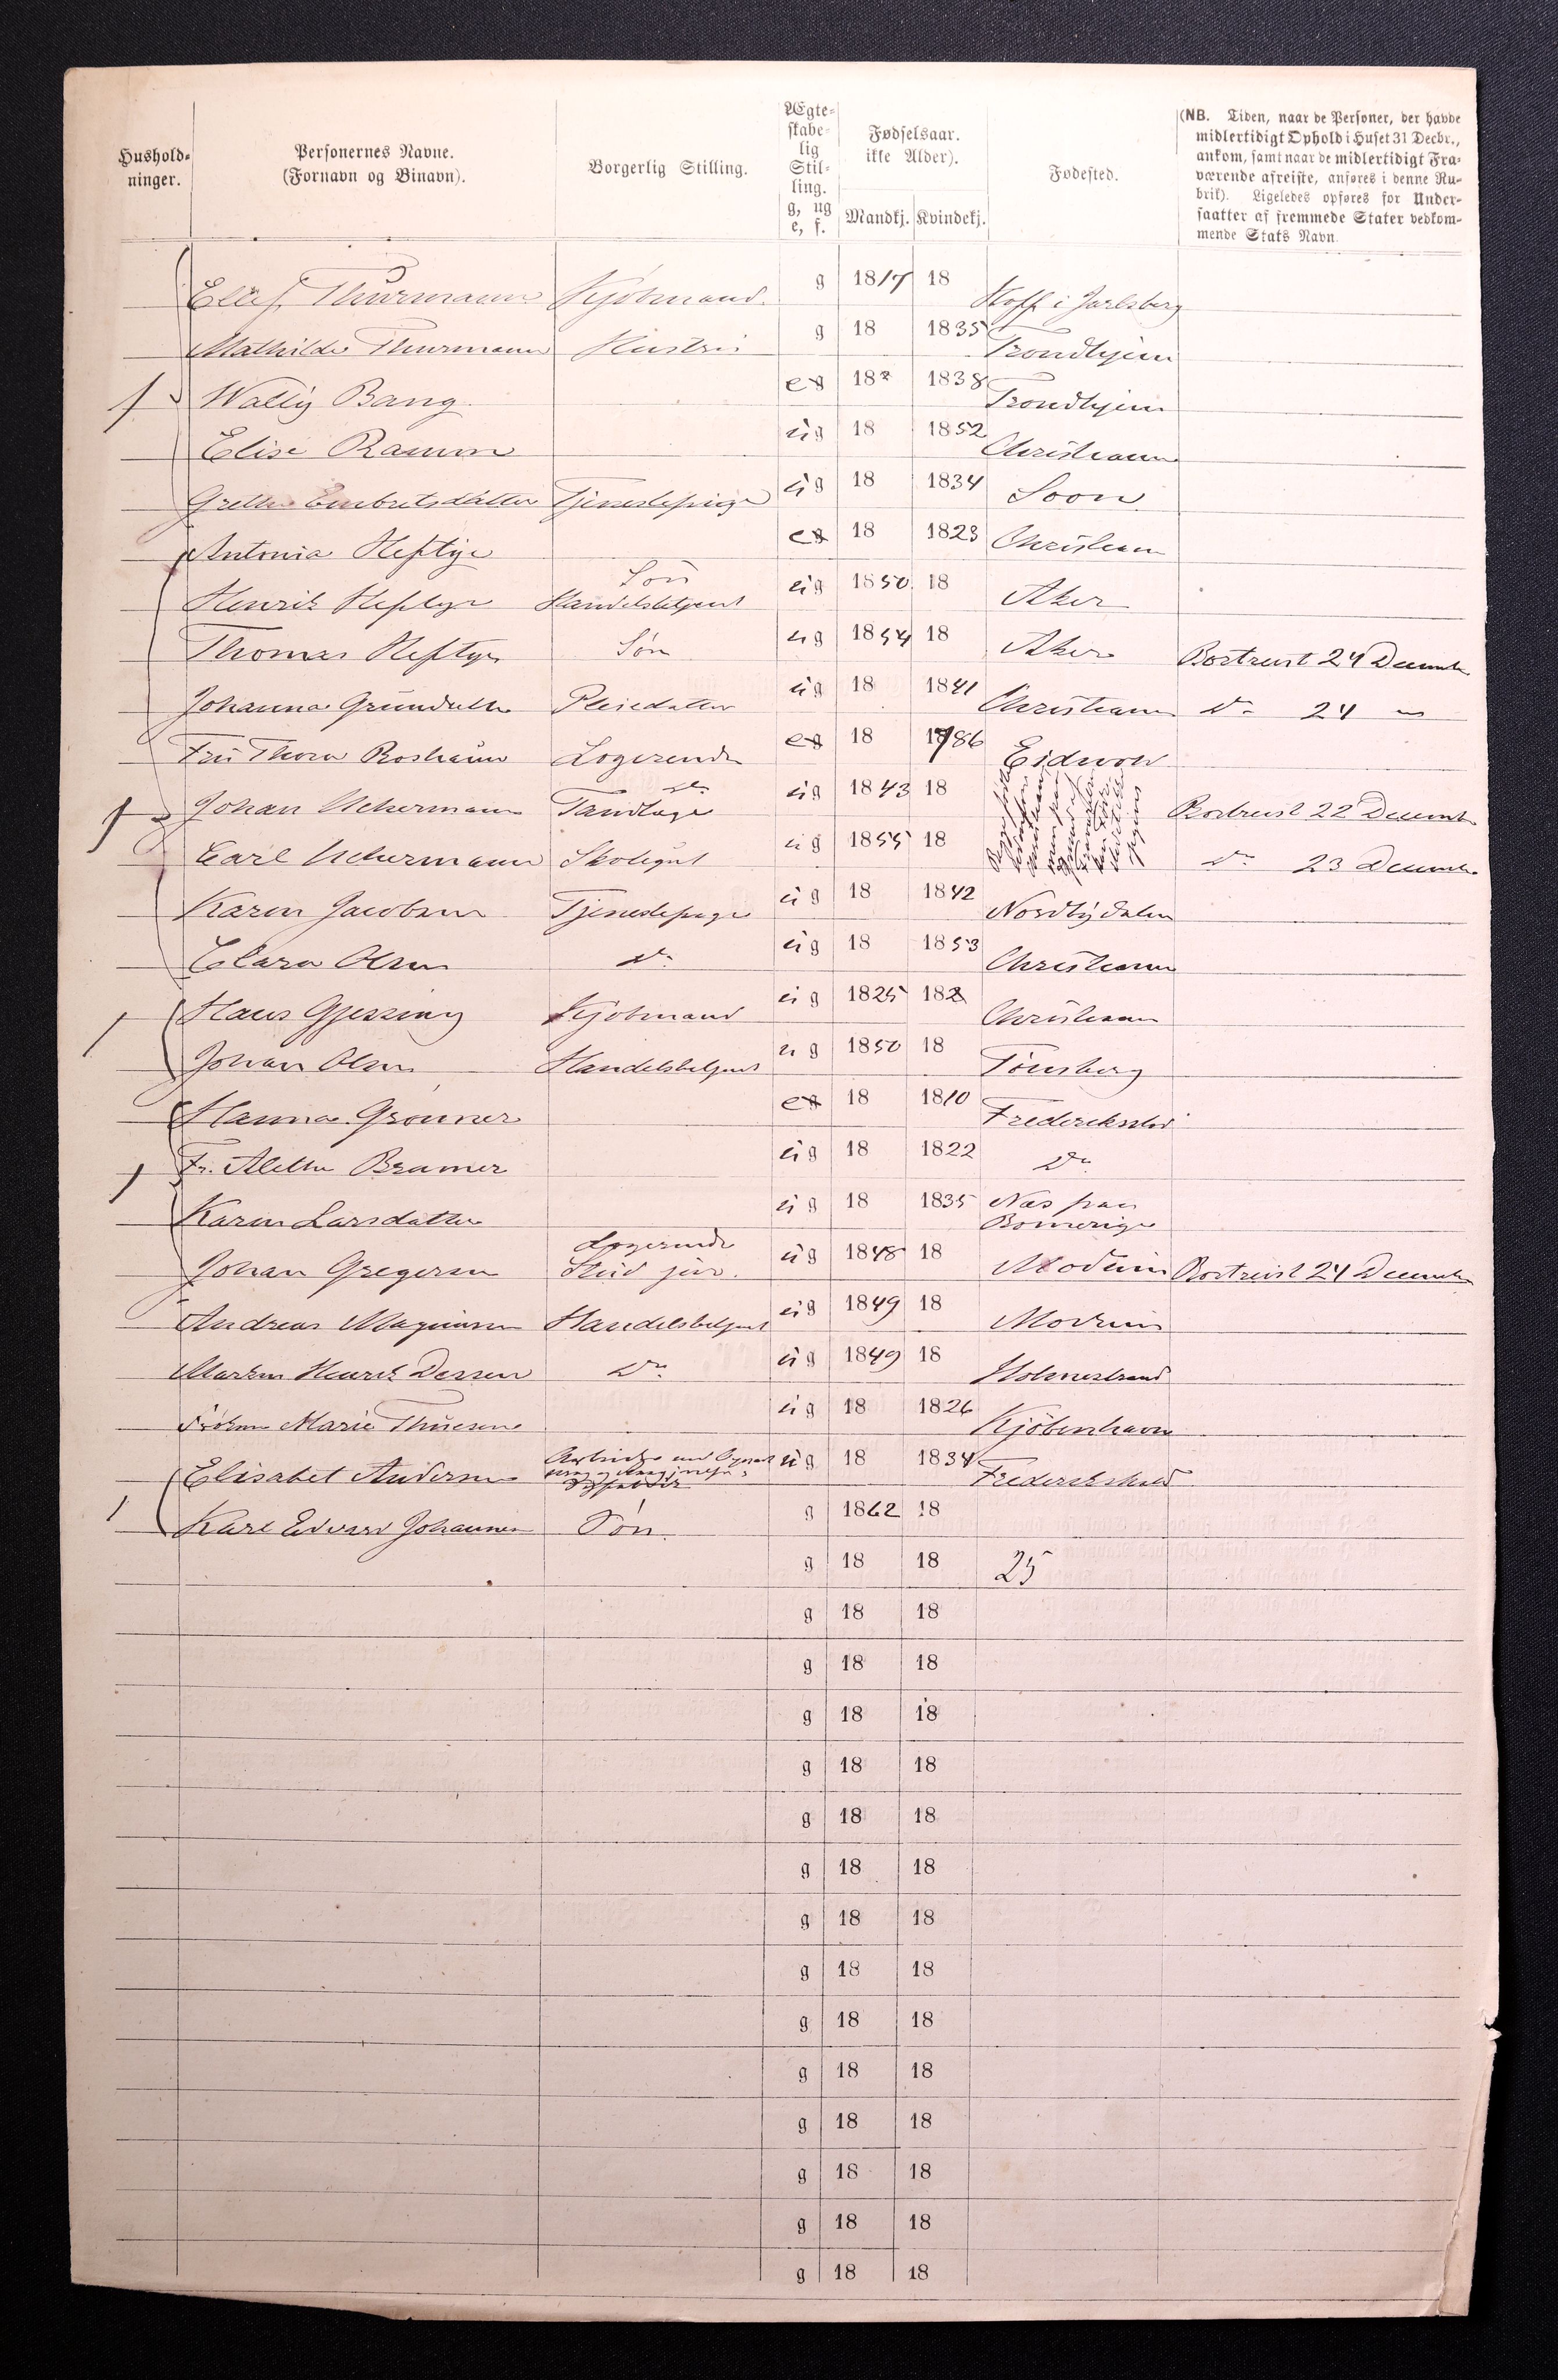 Hushold-
ninger.
Personernes Navne.
(Fornavn og Binavn).
Borgerlig Stilling.
Ægte-
skabe-
lig
Stil-
ling.
g, ug
e, f.
Fødselsaar.
ikke Alder).
Mandkj. Kvindekj.
Fødested.
(NB. Tiden, naar de Personer, der havde
midlertidigt Ophold i Huset 31 Decbr.,
ankom, samt naar de midlertidigt Fra-
værende afreiste, anføres i denne Ru-
brik). Ligeledes opføres for Under-
saatter af fremmede Stater vedkom-
mende Stats Navn.
Ellef Thurmann Kjøbmand g 1817 18 Hoff i Jarlsberg
Mathilde Thurmann Hustru g 18 1835 Trondhjem
Wally Bang e 18 1838 Trondhjem
Elise Ramm ug 18 1852 Christiania
Grethe Embretsdatter Tjenestepige ug 18 1834 Soon
Antonia Heftye e 18 1823 Christiania
Søn
Henrik Heftye Handelsbetjent ug 1850 18 Aker
Thomas Heftye Søn ug 1854 18 Aker Bortreist 24 December
Johanna Pleiedatter ug 18 1841 Christiania Do 24
Fru Thora Logerende e 18 1786 Eidsvold
Johan Uchermann Tandlæge ug 1843 18 Bortreist 22 December
Carl Uchermann Skolegut ug 1855 18 Do 23 December
Karen Jacobsen Tjenestepige ug 18 1842
Clara Olsen Do ug 18 1853 Christiania
Hans Gjessing Kjøbmand ug 1825 18 Christiania
Johan Olsen Handelsbetjent ug 1850 18 Tønsberg
Hanna Grønner e 18 1810 Frederiksstad
Fr. Alethe Bramer ug 18 1822 Do
Karen Larsdatter ug 18 1835 Næs paa
Romerige
Logerende
Johan Gregersen Stud jur. ug 1848 18 Modum Bortreist 24 December
Andreas Magnussen Handelsbetjent ug 1849 18 Modum
Henrik Dessen Do ug 1849 18 Holmestrand
Marie Thuesen ug 18 1826 Kjöbenhavn
Elisabet Andersen ug 18 1834 Frederikshald
Karl Edvard Johannesen Søn g 1862 18
g 18 18 25
g 18 18
g 18 18
g 18 18
g 18 18
g 18 18
g 18 18
g 18 18
g 18 18
g 18 18
g 18 18
g 18 18
g 18 18
g 18 18
g 18 18